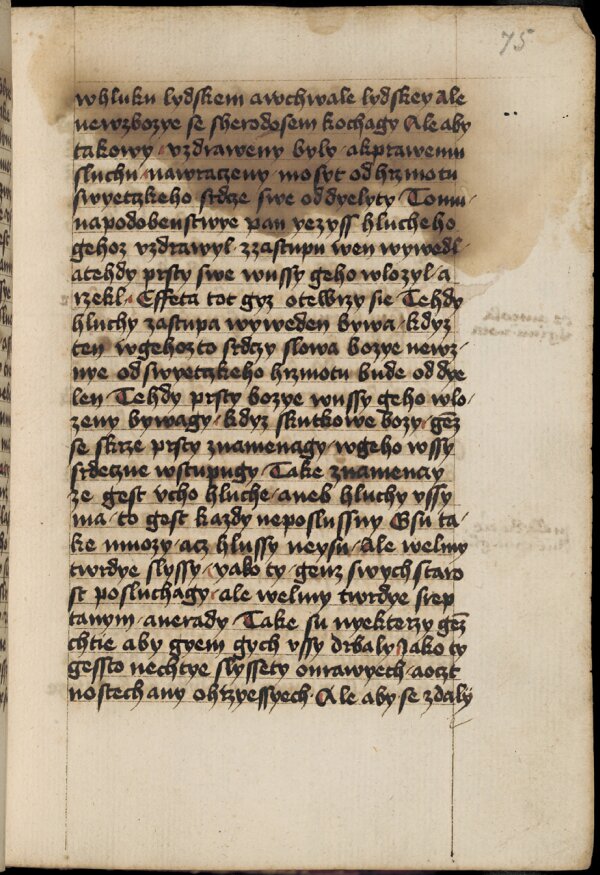 75
whluku lydskem awchwale lydskey Ale
newzbozye se sherodosem kochagy Ale aby
takowy vzdraweny byly akprawemu
sluchu nawraczeny mosyt od hrzmotu
swyetzkeho srdcze swe oddyelyty Tomu
napodobenstwye pan yezyss hlucheho
gehoz vzdrawyl zzastupu wen wywedl
atehdy prsty swe wussy geho wlozyl a
rzekl Effeta tot gyz otewrzy sie Tehdy
hluchy zastupa wyweden bywa kdyz
ten wgehozto srdczy slowa bozye newz
nye od swyetzkeho hrzmotu bude oddye
len Tehdy prsty bozye wussy geho wlo
zeny bywagy kdyz skutkowe bozy gez
se skrze prsty znamenagy wgeho wssy
srdeczne wstupugy Take znamenay
ze gest vcho hluche aneb hluchy vssy
ma to gest kazdy neposlussny Gsu ta
ke mnozy acz hlussy neysu Ale welmy
twrdye slyssy yako ty genz swych staro
st posluchagy ale welmy twrdye srep
tanym anerady Take su nyekterzy gez
chtie aby gyem gych vssy drbaly Jako ty
gessto nechtye slyssety omrawyech aoczt
nostech any ohrzyessyech Ale aby se zdaly